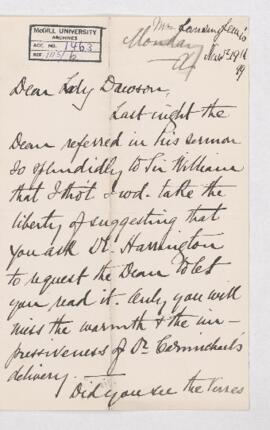 McGILL UNIVERSITY
ARCHIVES
ACC. NO. 1463
REF.
Mrs
Monday
99
Dear Lady Dawson,
Last night the
Dean referred in his sermon
so splendidly to Sir William
that I thot I wod. take the
liberty of suggesting that
you ask Dr. Harrington
to request the Dean to let
you read it. Only you will
miss the warmth & the im-
pressiveness of Dr Carmichael's
delivery.
Did you see the verses